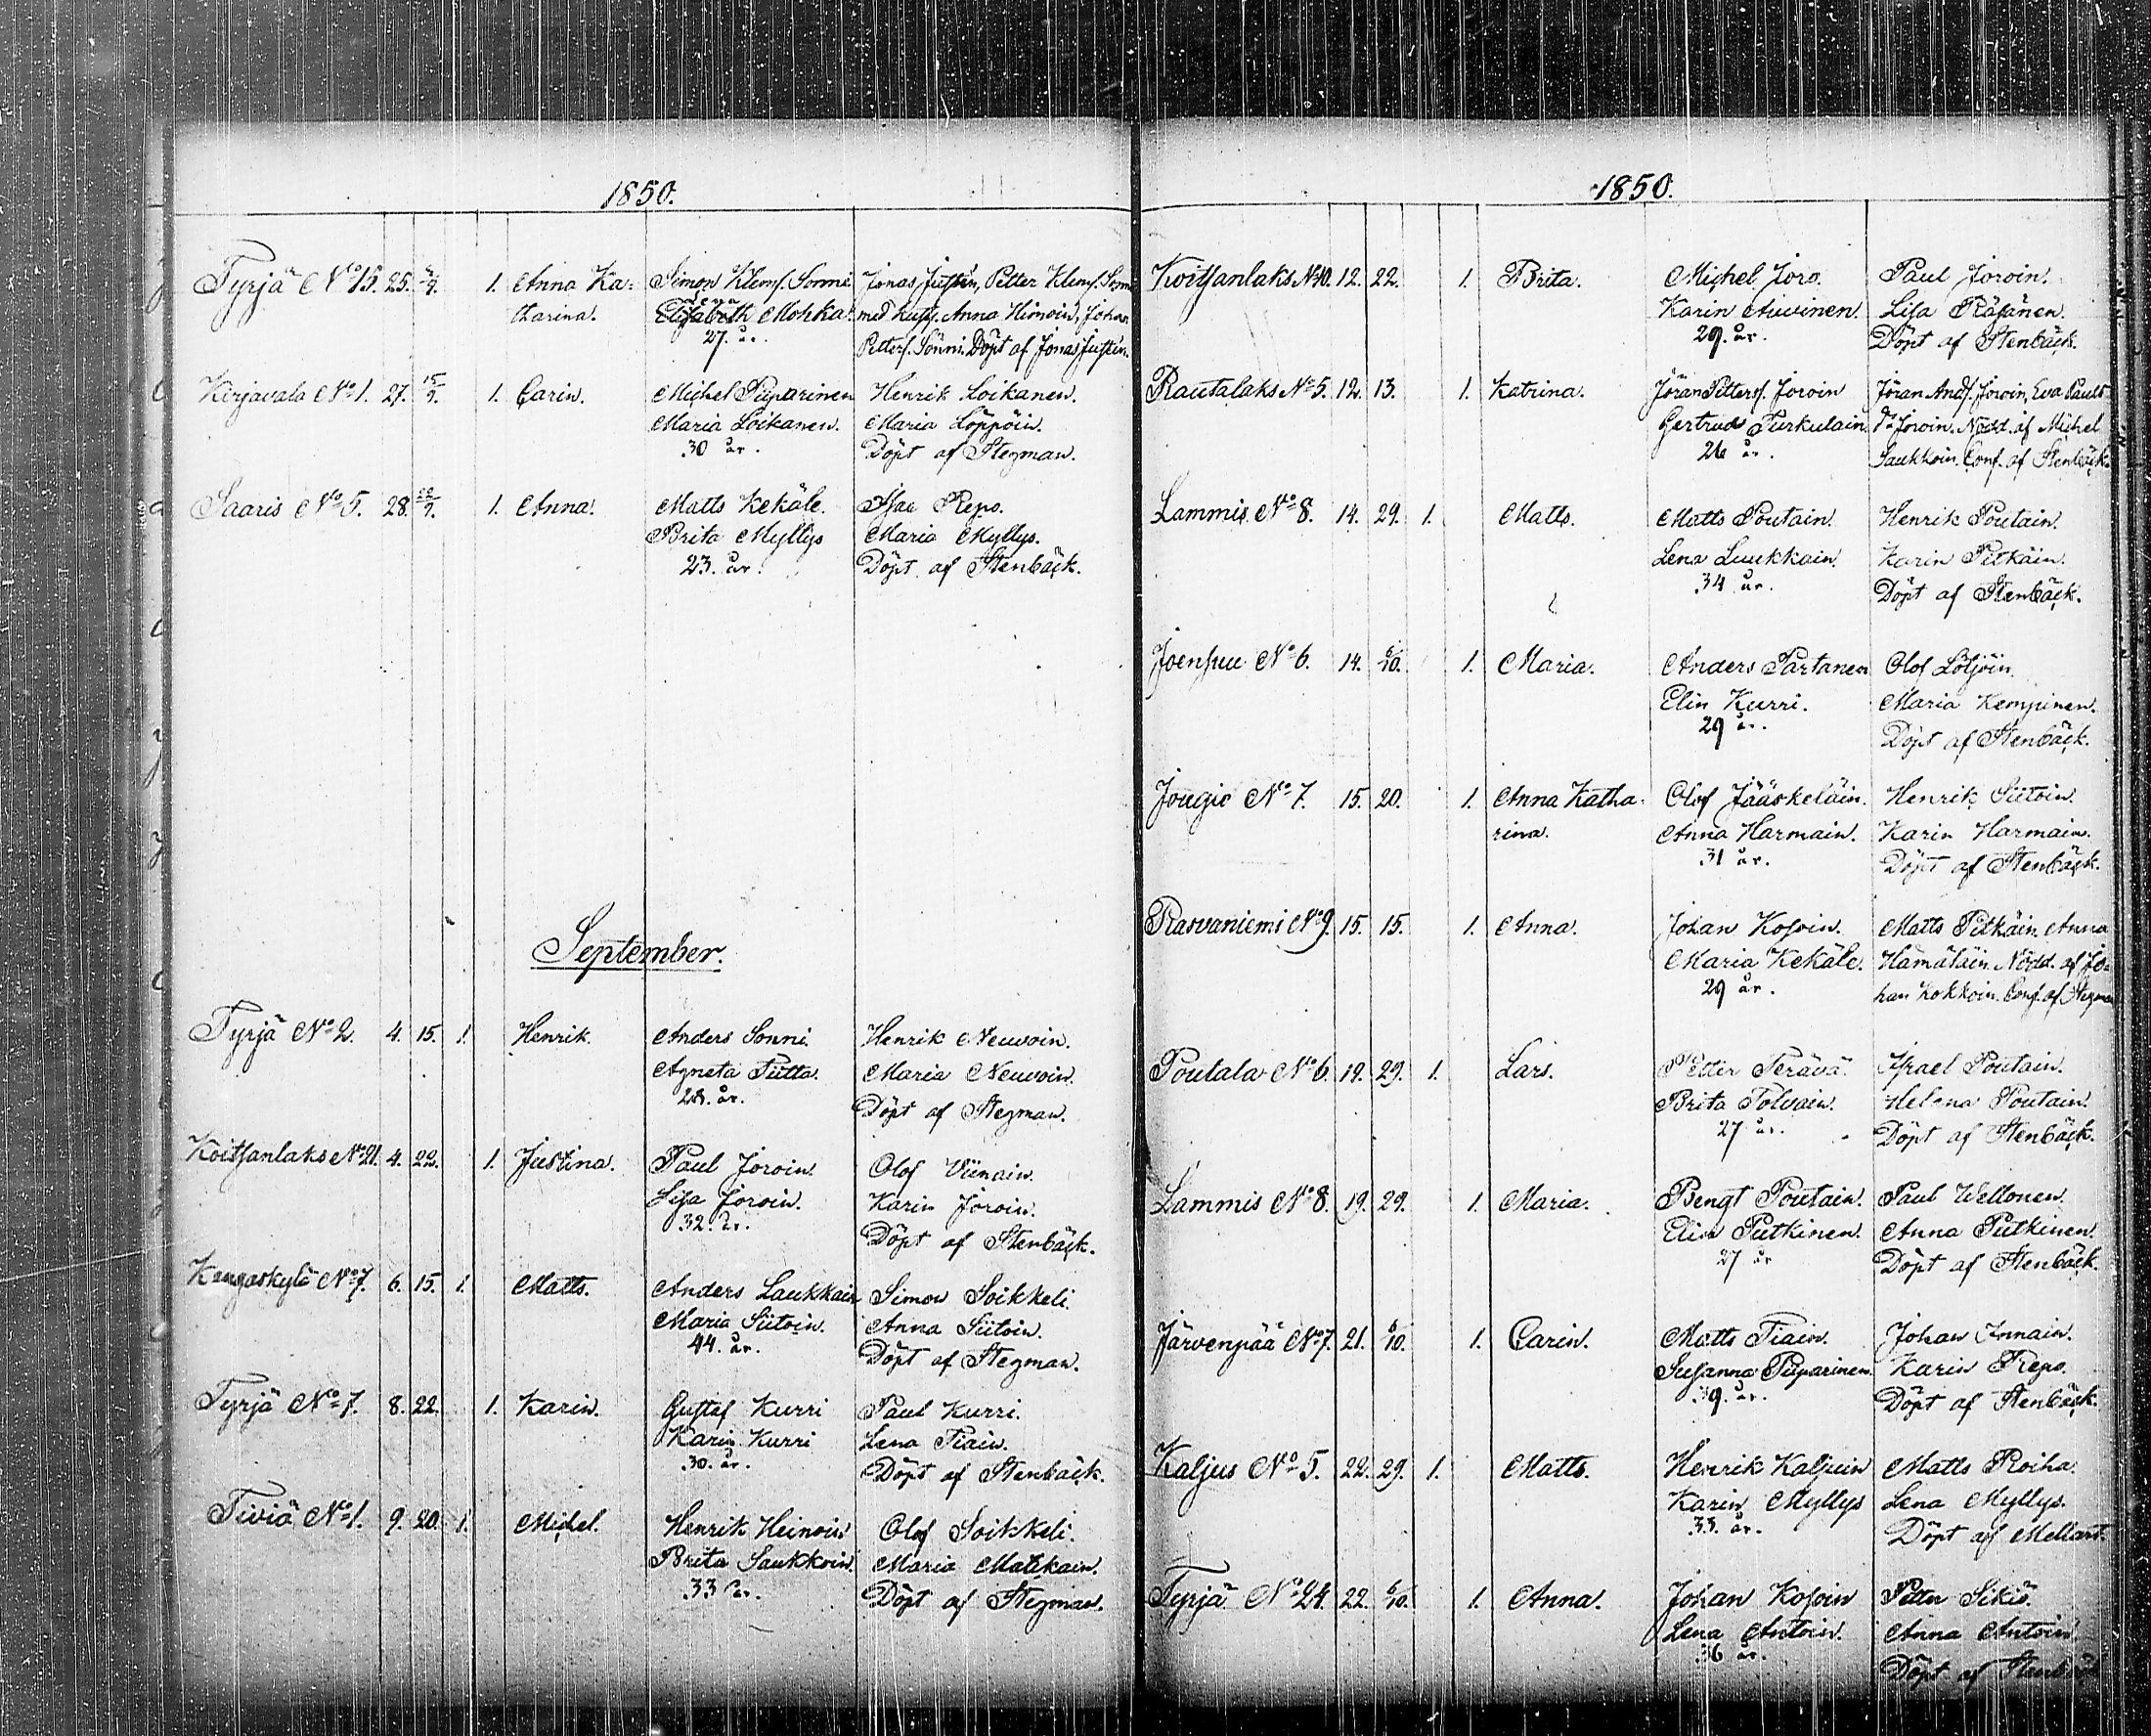 1850.
Tyrjä No 15. 25. 9. 1. Anna Ka- Simon Klems. Sonni. Jonas Justén, Petter Klems. Sonni
tharina. Lena Elisabeth Mohka. med hust. Anna Himoin, Johan
27. år. Petters. Sonni. Döpt af Jonas Justén.
Kirjavala No 1. 27. 15/9. 1. Carin. Michel Piiparinen Henrik Loikanen.
Maria Loikanen. Maria Löppöin.
30 år. Döpt af Stegman.
Saaris No 5. 28. 22/9. 1. Anna. Matts Kekäle. Isac Repo.
Brita Myllys Maria Myllys.
23. år. Döpt af Stenbäck.
September.
Tyrjä No 2. 4. 15. 1. Henrik. Anders Sonni. Henrik Neuvoin.
Agneta Tutta. Maria Neuvoin.
28. år. Döpt af Stegman.
Koitsanlaks No 21. 4. 22. 1. Justina. Paul Joroin. Olof Viinain.
Lisa Joroin. Karin Joroin.
32. år. Döpt af Stenbäck.
Kangaskylä No 7. 6. 15. 1. Matts. Anders Laukkain Simon Soikkeli.
Maria Siitoin. Anna Siitoin.
44. år. Döpt af Stegman.
Tyrjä No 7. 8. 22. 1. Karin. Gustaf Kurri Paul Kurri.
Karin Kurri Lena Tiain.
30. år. Döpt af Stenbäck.
Tiviä No 1. 9. 20. 1. Michel. Henrik Heinoin Olof Soikkeli.
Brita Saukkoin. Maria Matikain.
33 år. Döpt af Stegman.
1850.
Koitsanlaks No 10. 12. 22. 1. Brita. Michel Joro. Paul Joroin.
Karin Auvinen. Lisa Räsänen.
29. år. Döpt af Stenbäck.
Rautalaks No 5. 12. 13. 1. Katrina. Jöran Petters. Joroin Jöran Ands. Joroin, Eva Pauls
Gertrud Turkulain. dr Joroin. Nödd. af Michel
26 år. Saukkoin. Conf. af Stenbäck.
Lammis No 8. 14. 29. 1. Matts. Matts Poutain. Henrik Poutain.
Lena Luukkain. Karin Pitkäin.
34 år. Döpt af Stenbäck.
Joensuu No 6. 14. 6/10. 1. Maria. Anders Partanen Olof Lötjöin.
Elin Kurri. Maria Kempinen.
29 år. Döpt af Stenbäck.
Jougio No 7. 15. 20. 1. Anna Katha- Olof Jääskeläin. Henrik Siitoin.
rina. Anna Harmain. Karin Harmain.
31 år. Döpt af Stenbäck.
Rasvaniemi No 9. 15. 15. 1. Anna. Johan Kosoin. Matts Pitkäin. Anna
Maria Kekäle. Hämäläin. Nödd. af Jo-
29 år. han Kokkoin. Conf. af Stegman
Poutala No 6. 19. 29. 1. Lars. Petter Terävä. Israel Poutain.
Brita Tolvain. Helena Poutain.
27 år. Döpt af Stenbäck.
Lammis No 8. 19. 29. 1. Maria. Bengt Poutain. Paul Wellonen.
Elin Putkinen. Anna Putkinen.
27 år Döpt af Stenbäck.
Järvenpää No 7. 21. 6/10. 1. Carin. Matts Tiain. Johan Innain.
Susanna Piiparinen. Karin Repo.
39. år. Döpt af Stenbäck.
Kaljus No 5. 22. 29. 1. Matts. Henrik Kaljuin Matts Roiha.
Karin Myllys Lena Myllys.
33. år. Döpt af Mellart.
Tyrjä No 24. 22. 6/10. 1. Anna. Johan Kosoin Petter Sikiö.
Lena Antoin. Anna Antoin.
36 år. Döpt af Stenbäck